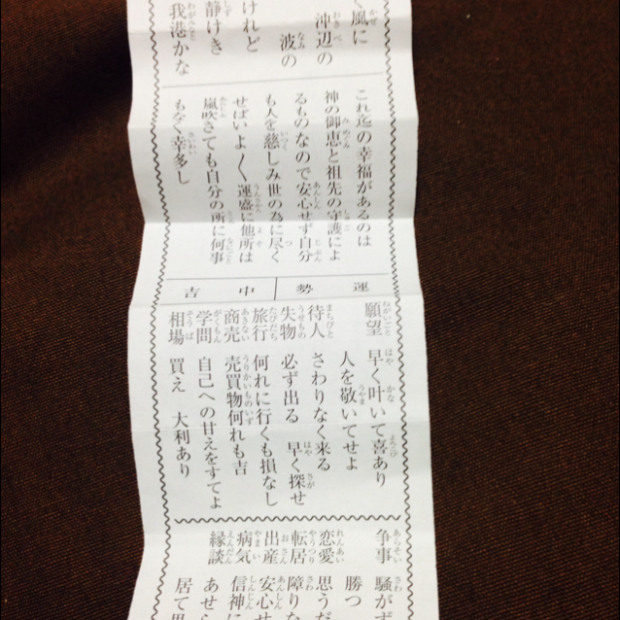 く風に
沖辺の
波の
けれど
静けき
我港かな
これ迄の幸福があるのは
神の御恵と祖先の守護によ
るものなので安心せず自分
も人を慈しみ世の為に尽く
せばいよ〱運盛に他所は
嵐吹きても自分の所に何事
もなく幸多し
運勢 中吉
願望 早く叶いて喜あり
人を敬いてせよ
待人 さわりなく来る
失物 必ず出る 早く探せ
旅行 何れに行くも損なし
商売 売買物何れも吉
学問 自己への甘えをすてよ
相場 買え 大利あり
争事 騒がず
勝つ
恋愛 思うだ
転居 障りな
出産 安心せ
病気 信神に
縁談 あせら
居て